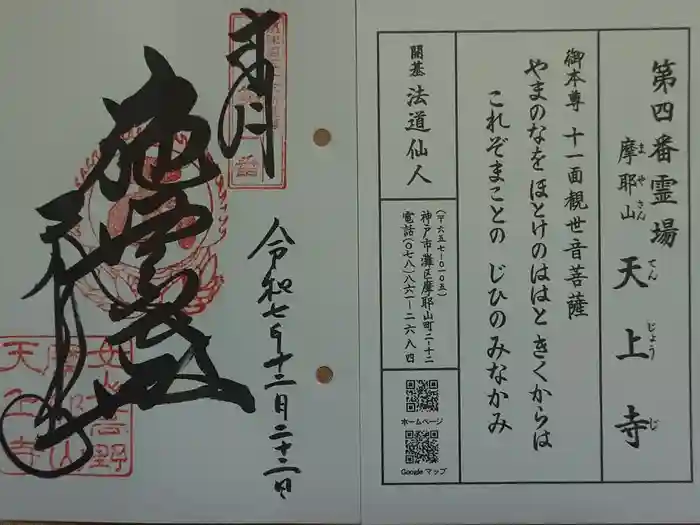 第四番霊場
摩耶山 天上寺
まやさん てんじょうじ
御本尊 十一面観世音菩薩
やまのなを ほとけのははと きくからは
これぞまことの じひのみなかみ
開基 法道仙人
(〒六五七-〇一〇五)
神戸市灘区摩耶山町二-十二
電話(〇七八)八六一-二六八四
ホームページ
Googleマップ
奉拝
令和七年十二月二十二日
摩耶山
天上寺